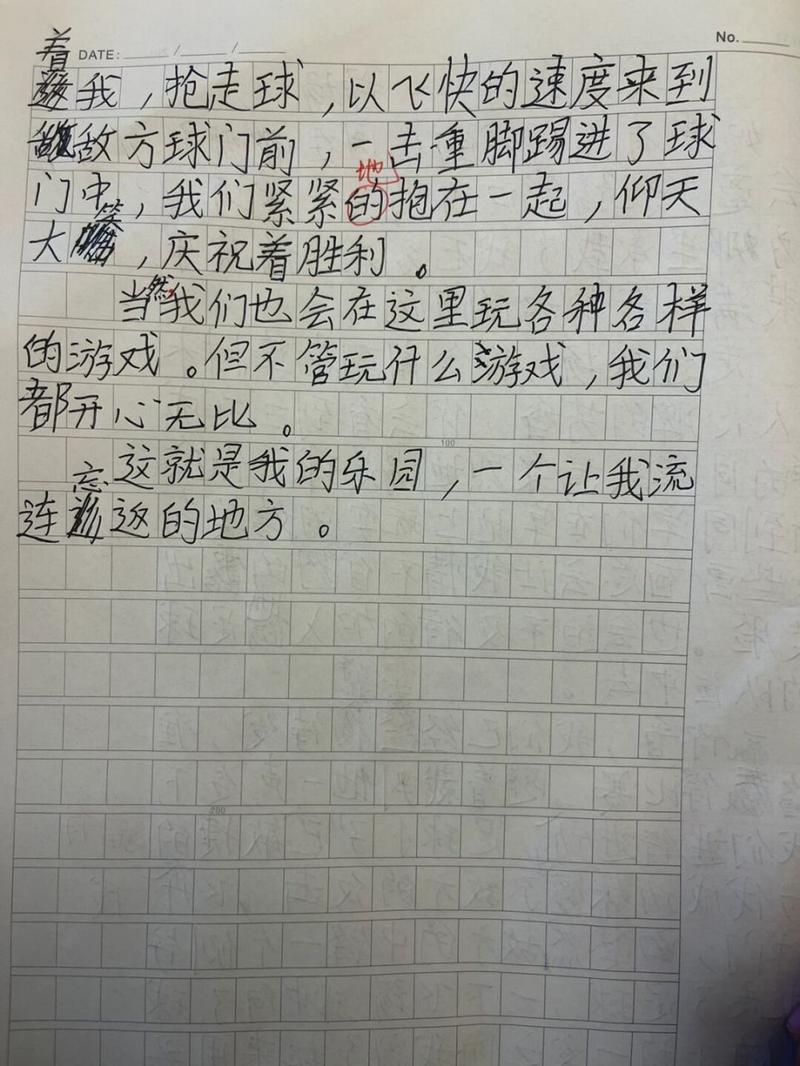 No.
DATE: / /
着我，抢走球，以飞快的速度来到
敌方球门前，一击重脚踢进了球
门中，我们紧紧的抱在一起，仰天
地
大笑，庆祝着胜利。
当然我们也会在这里玩各种各样
的游戏。但不管玩什么游戏，我们
都开心无比。
100
这就是我的乐园，一个让我流
连忘返的地方。
200